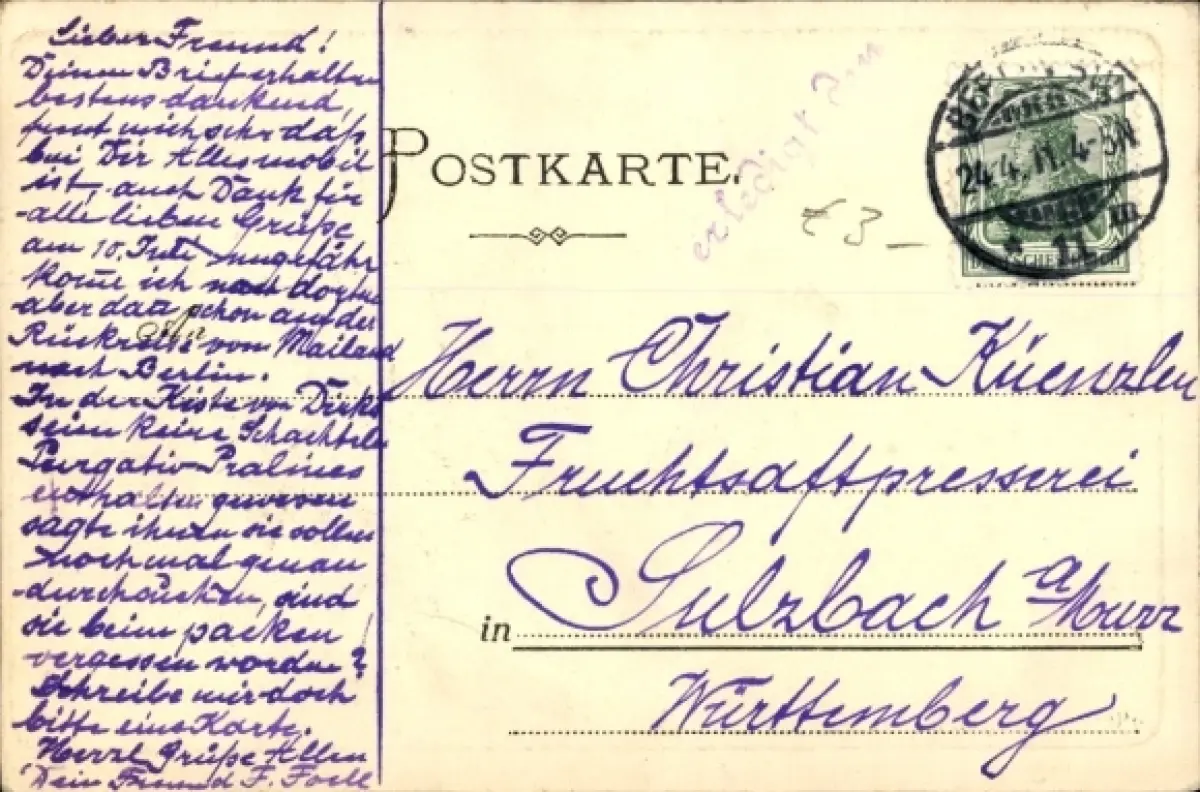 Lieber Freund!
Deinen Brief erhalten
bestens dankend,
freut mich sehr daß
bei Dir Alles mobil
ist, auch Dank für
alle lieben Grüße
am 10. ungefähr
kome ich
aber schon auf der
Rückreise von Mailand
nach Berlin.
In der Kiste von
seien keine Schachteln
Purgativ-Pralines
enthalten gewesen
sagte ihnen sie sollen
noch mal genau
durchsuchen, sind
sie beim packen
vergessen worden?
Schreibe mir doch
bitte eine Karte.
Herzl Grüße Allen
Dein Freund F.
POSTKARTE.
erledigt
€ 3 –
24.4.11.4-5N
DEUTSCHES REICH
Herrn Christian Küenzlen
Fruchtsaftpresserei
in Sulzbach a/Murr
Württemberg